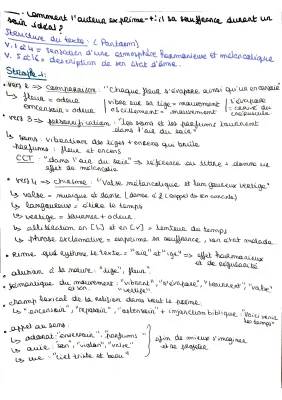 Comment l'auteur exprime-t-il sa souffrance durant un
soir idéal ?
Structure du texte : (Pantoum)
v. 1 à 4 = sensation d'une atmosphère harmonieuse et mélancolique
v. 5 à 16 = description de son état d'âme.
Strophe 1 :
• vers 2 => comparaison : "Chaque fleur s'évapore ainsi qu'un encensoir
↳ fleur = odeur
encensoir = odeur
vibre sur sa tige = mouvement
mouvement
s'évapore
crépuscule
• vers 3 => : "Les sons et les parfums tournent
dans l'air du soir"
↳ sons : vibration des tiges + encens qui brûle
parfums : fleur et encens
CCT : "dans l'air du soir" => référence au titre + donne un
effet de mélancolie
• vers 4 => chiasme : "Valse mélancolique et langoureux vertige"
↳ valse = musique et danse
↳ langoureux = le temps
↳ vertige = + odeur
↳ allitération en [L] et en [V] = lenteur du temps
↳ phrase exclamative = exprime la souffrance, son état malade
• Rime qui rythme le texte = "oir" et "ige" => effet harmonieux
et de régularité
• allusion à la nature : "tige", fleur"
• sémantique du mouvement : "vibrant", "s'évapore", "tournent" "valse"
"vertige"
• champ lexical de la religion dans tout le poème
↳ "encensoir", "reposoir", "ostensoir" + injonction biblique "Voici venir
les temps"
• appel au sens :
↳ odorat "encensoir", "parfums"
↳ ouïe : "son", "violon", "valse"
↳ vue : "ciel triste et beau"
afin de mieux s'imaginer
et se projeter